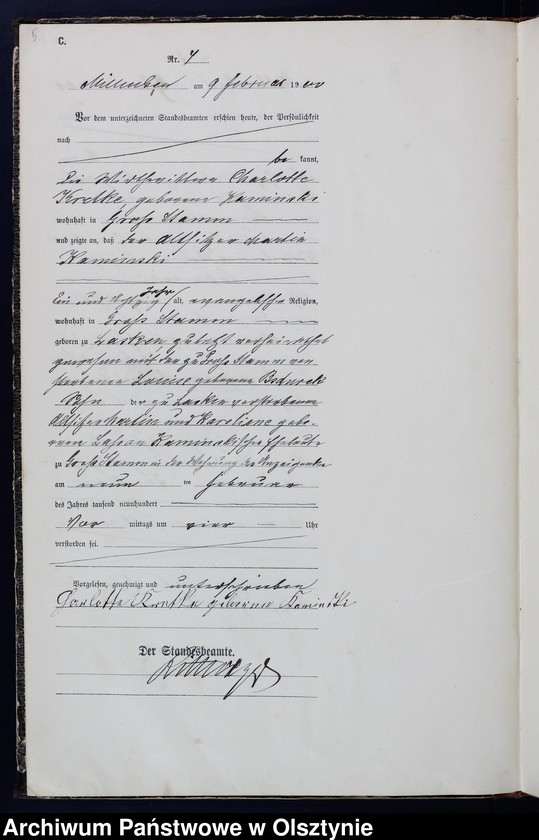 5
C.
Nr. 4
am 9 Februar 1900
Vor dem unterzeichneten Standesbeamten erschien heute, der Persönlichkeit
nach
be kannt,
Die Charlotte
geborene Kaminski
wohnhaft in Groß Stamm
und zeigte an, daß der Altsitzer Martin
Kaminski
Ein und Achtzig Jahr alt, evangelischer Religion,
wohnhaft in Groß Stamm
geboren zu zuletzt verheirathet
gewesen mit der zu Groß Stamm ver-
storbenen Louise geborene
Sohn der zu verstorbenen
Altsitzer Martin und Karoline gebo-
rene Kaminskischen Eheleute
zu Groß Stamm in der Wohnung der Anzeigenden
am neun ten Februar
des Jahres tausend neunhundert
Vor mittags um vier Uhr
verstorben sei.
Vorgelesen, genehmigt und unterschrieben
geborene Kaminski
Der Standesbeamte.
Archiwum Państwowe w Olsztynie